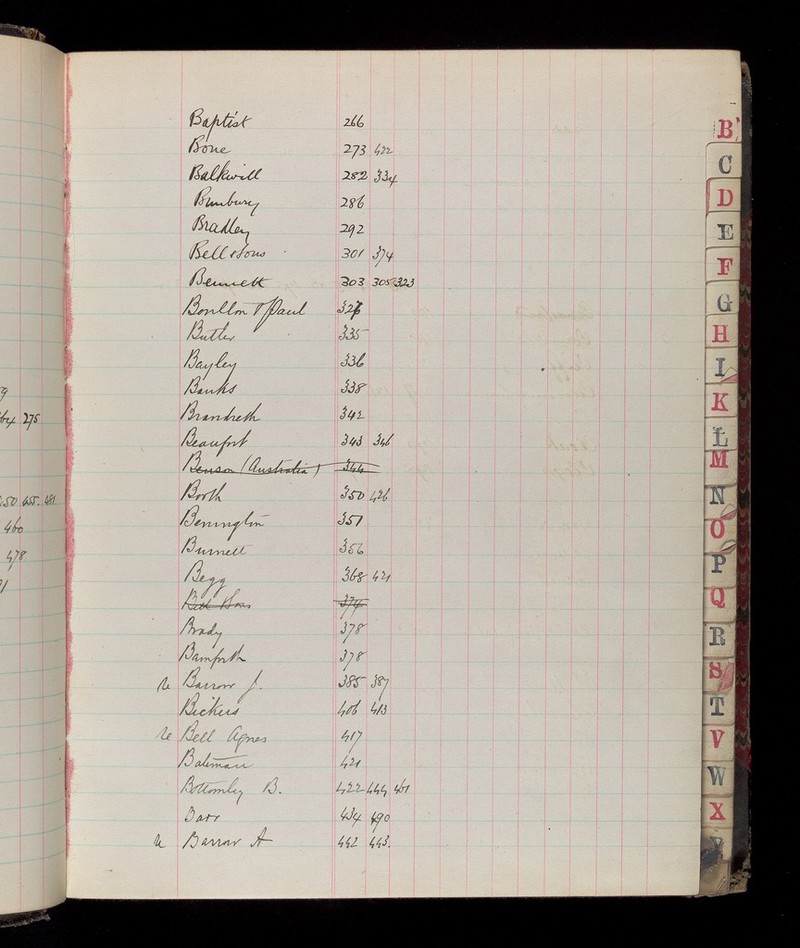 Baptist 266
Bone 273 422
Balkwill 282 334
Bunbury 286
Bradley 292
Bell & Sons 301 374
Bennett 303 305 323
Boullon & Paul 326
Butler 335
Bayley 336
Banks 338
Brandreth 342
Beaufort 343 346
Benson (Australia) 344
Booth 350 426
Benington 351
Burnett 356
Begg 368 421
Bell Sons 374
Brady 378
Bamforth 378
Barrow J. 385 387
Bickers 406 413
Bell Agnes 417
Bateman 421
Bottomley B. 422 444 461
Barr 434 490
Barrow A 442 443.
275
450 455. 481
460
478
B
C
D
E
F
G
H
I
K
L
M
N
O
P
Q
R
S
T
V
W
X
Y